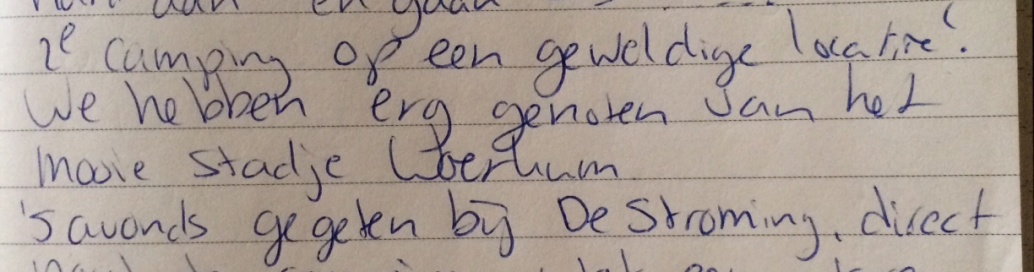 aan en gaan
2e camping op een geweldige locatie!
We hebben erg genoten van het
mooie stadje Woerkum
's avonds gegeten bij De Stroming, direct